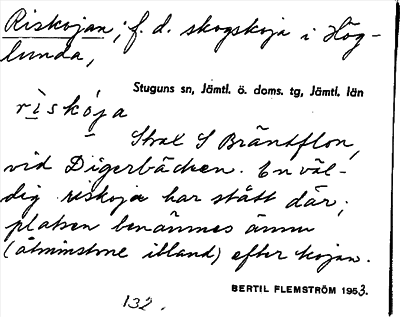 Riskojan, f. d. skogskoja i Hög-
lunda,
Stuguns sn, Jämtl. ö. doms. tg, Jämtl. län
rìskó̱ja
Strax S Bräntflon,
vid Digerbäcken. En väl-
dig riskoja har stått där;
platsen benämnes ännu
(åtminstone ibland) efter kojan.
BERTIL FLEMSTRÖM 1953.
132.